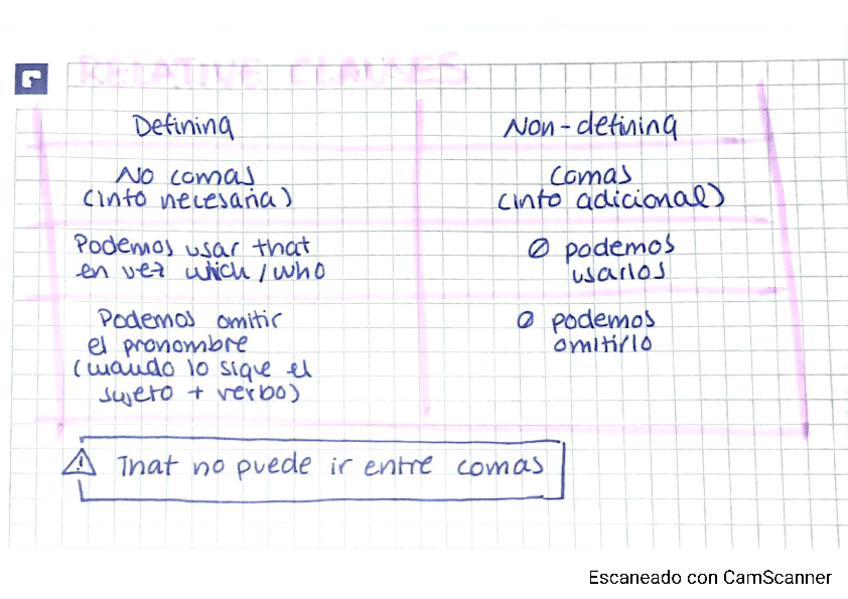 RELATIVE CLAUSES
Defining
Non-defining
No comas
(info necesaria)
Comas
(info adicional)
Podemos usar that
en vez which / who
Ø podemos
usarlos
Podemos omitir
el pronombre
(cuando lo sigue el
sujeto + verbo)
Ø podemos
omitirlo
That no puede ir entre comas
Escaneado con CamScanner